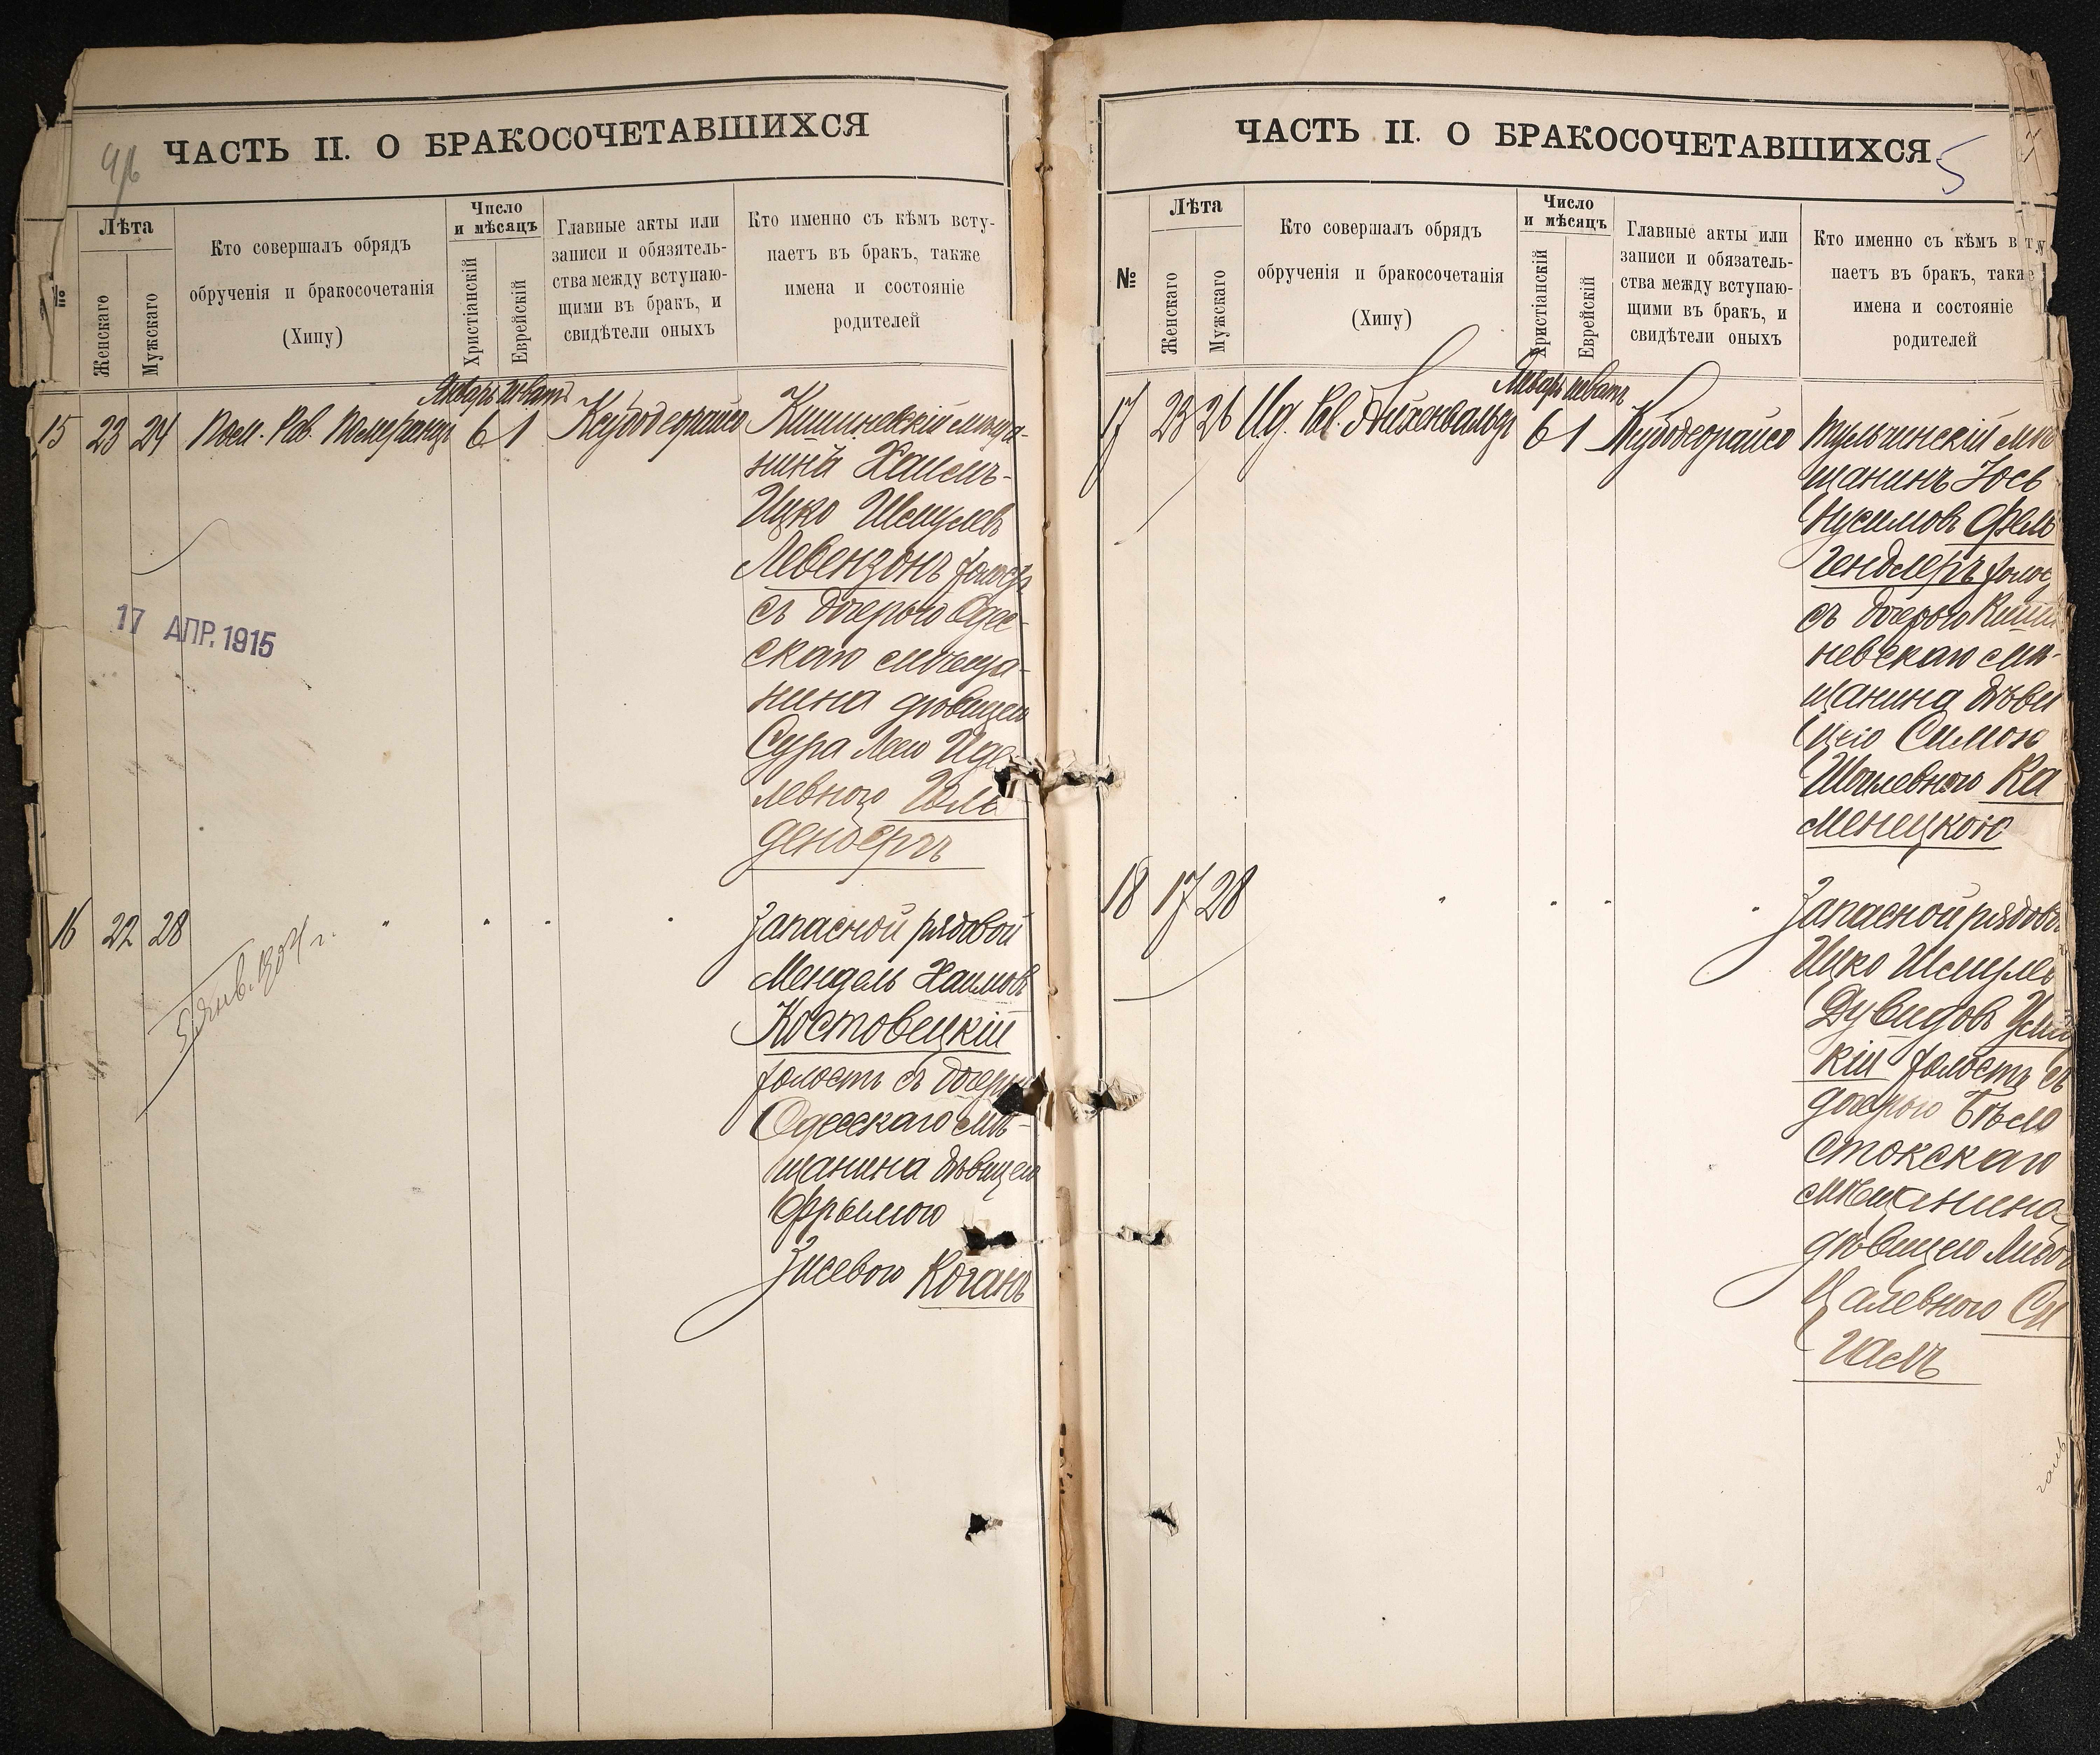 ЧАСТЬ II. О БРАКОСОЧЕТАВШИХСЯ
№
Лѣта
Женскаго
Мужскаго
Кто совершалъ обрядъ
обрученія и бракосочетанія
(Хипу)
Число
и мѣсяцъ
Христіанскій
Еврейскій
Главные акты или
записи и обязатель-
ства между вступаю-
щими въ бракъ, и
свидѣтели оныхъ
Кто именно съ кѣмъ всту-
паетъ въ бракъ, также
имена и состояніе
родителей
Январь Шватъ
15 23 24 Пом. Рав. Померанцъ 6 1 Ксубодеорайсо
Кишиневскій мѣща-
нинъ Хаимъ-
Ицко Шмулевъ
Левензонъ холостъ
съ дочерью Одес-
скаго мѣща-
нина дѣвицею
Сура Лею Иде-
левною Голь
денбергъ
17 АПР. 1915
16 22 28 " " " "
Запасной рядовой
Мендель Хаимовъ
Костовецкій
холостъ съ дочерью
Одесскаго мѣ-
щанина дѣвицею
Фрымою
Зисевою Коганъ
ЧАСТЬ II. О БРАКОСОЧЕТАВШИХСЯ
5
№
Лѣта
Женскаго
Мужскаго
Кто совершалъ обрядъ
обрученія и бракосочетанія
(Хипу)
Число
и мѣсяцъ
Христіанскій
Еврейскій
Главные акты или
записи и обязатель-
ства между вступаю-
щими въ бракъ, и
свидѣтели оныхъ
Кто именно съ кѣмъ всту
паетъ въ бракъ, также
имена и состояніе
родителей
Январь Шватъ
17 23 26 Ид. Рав. Айхенвальдъ 6 1 Ксубодеорайсо
Тульчинскій мѣ
щанинъ Юсь
Нусимовъ Фель
гендлеръ холос
съ дочерью Киши
невскаго мѣ-
щанина дѣви
цею Симою
Шоилевною Ка
менецкою
18 17 28 " " " "
Запасной рядовой
Ицко Шмуль
Дувидовъ
кій холостъ съ
дочерью Бѣло
стокскаго
мѣщанина
дѣвицею
Цалевною Си
галъ
галъ